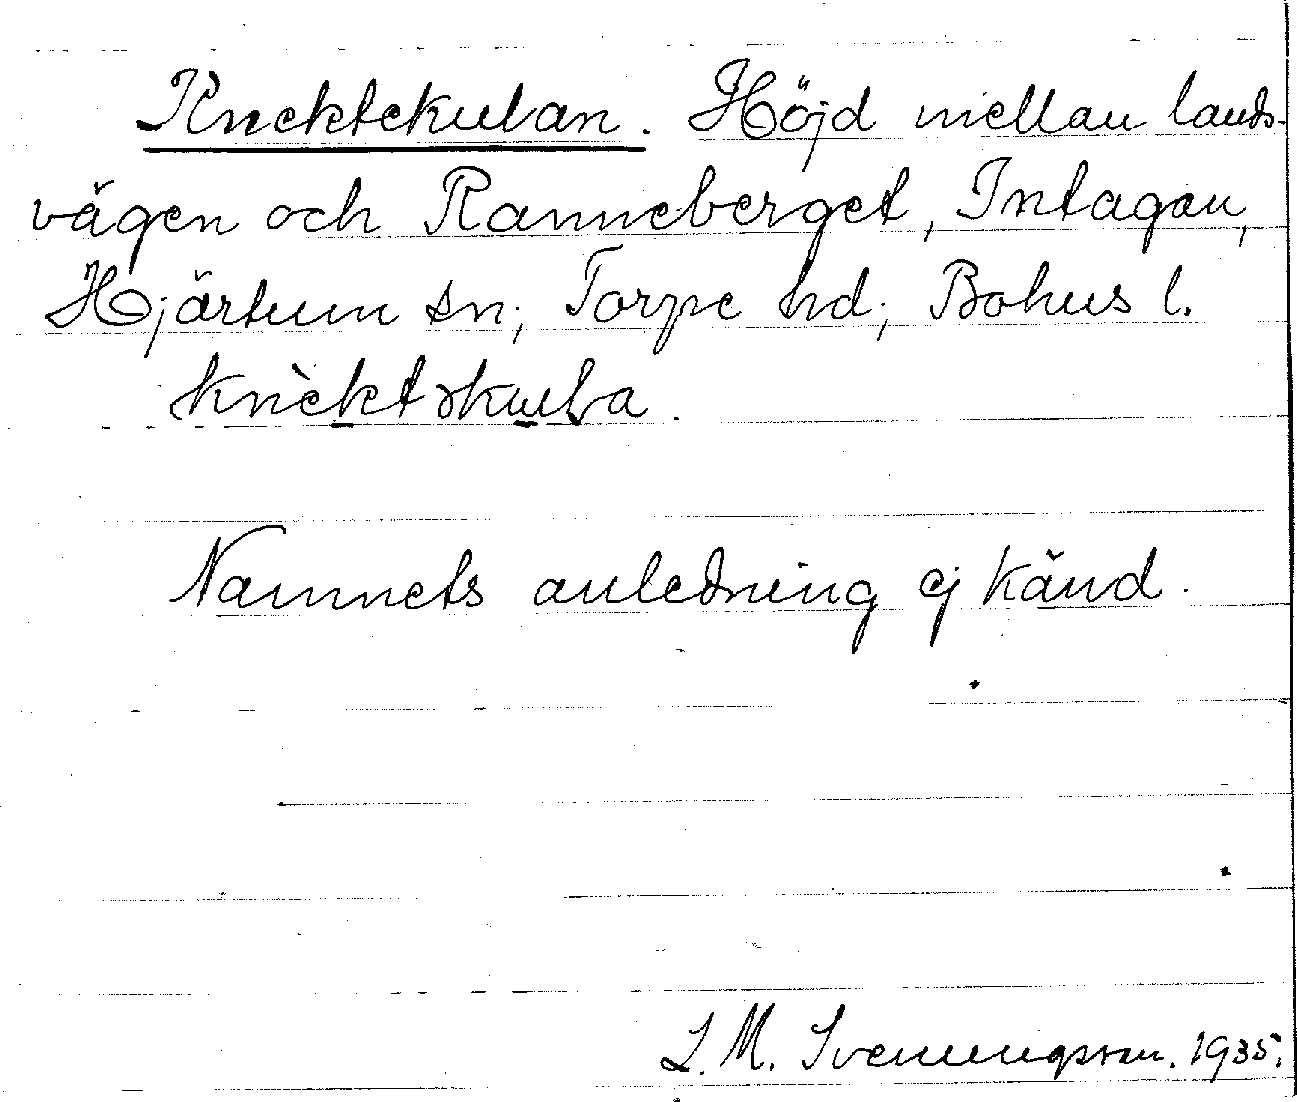 Knektekulan. Höjd mellan lands-
vägen och Ranneberget, Intagan,
Hjärtum sn; Torpe hd; Bohus l.
knèktəkula.
Namnets anledning ej känd.
J. M. Svenungsson. 1935.